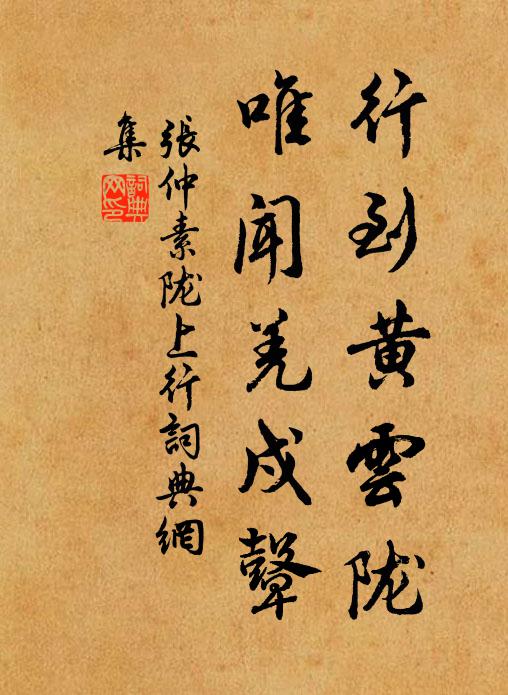 行到黄雲陇
唯闻羌戍鼙
張仲素陇上行詞典網
集
詞典
网印